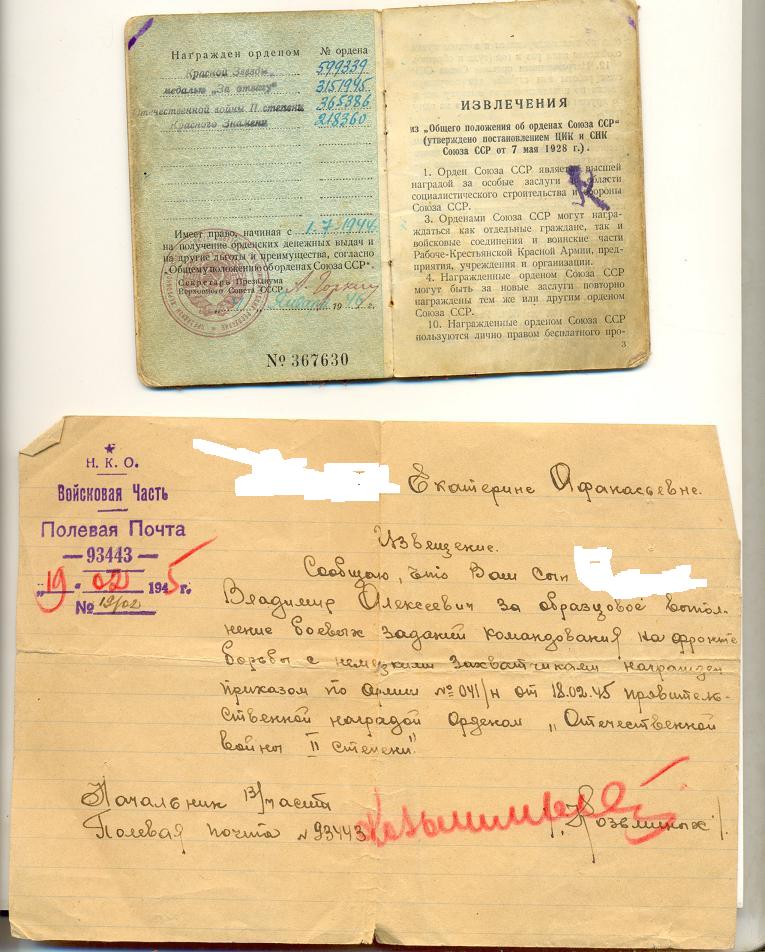 Награжден орденом № ордена
Красной Звезды 599339
медалью „За отвагу" 3157945
Отечественной войны II степени 365386
Красного Знамени 218360
Имеет право, начиная с 1.7.1944
на получение орденских денежных выдач и
на другие льготы и преимущества, согласно
„Общему положению об орденах Союза ССР".
Секретарь Президиума
Верховного Совета СССР А. Горкин
Январь 1946 г.
№ 367630
ИЗВЛЕЧЕНИЯ
из „Общего положения об орденах Союза ССР"
(утверждено постановлением ЦИК и СНК
Союза ССР от 7 мая 1928 г.).
1. Орден Союза ССР является высшей
наградой за особые заслуги в области
социалистического строительства и обороны
Союза ССР.
3. Орденами Союза ССР могут награ-
ждаться как отдельные граждане, так и
войсковые соединения и воинские части
Рабоче-Крестьянской Красной Армии, пред-
приятия, учреждения и организации.
4. Награжденные орденом Союза ССР
могут быть за новые заслуги повторно
награждены тем же или другим орденом
Союза ССР.
10. Награжденные орденом Союза ССР
пользуются лично правом бесплатного про-
3
Н. К. О.
Войсковая Часть
Полевая Почта
— 93443 —
„19" 02 1945 г.
№ 19/02
Екатерине Афанасьевне.
Извещение.
Сообщаю, что Ваш сын
Владимир Алексеевич за образцовое выпол-
нение боевых заданий командования на фронте
борьбы с немецкими захватчиками награжден
приказом по Армии № 041/н от 18.02.45 правитель-
ственной наградой Орденом „Отечественной
войны II степени"
Начальник в/части
Полевая почта № 93443